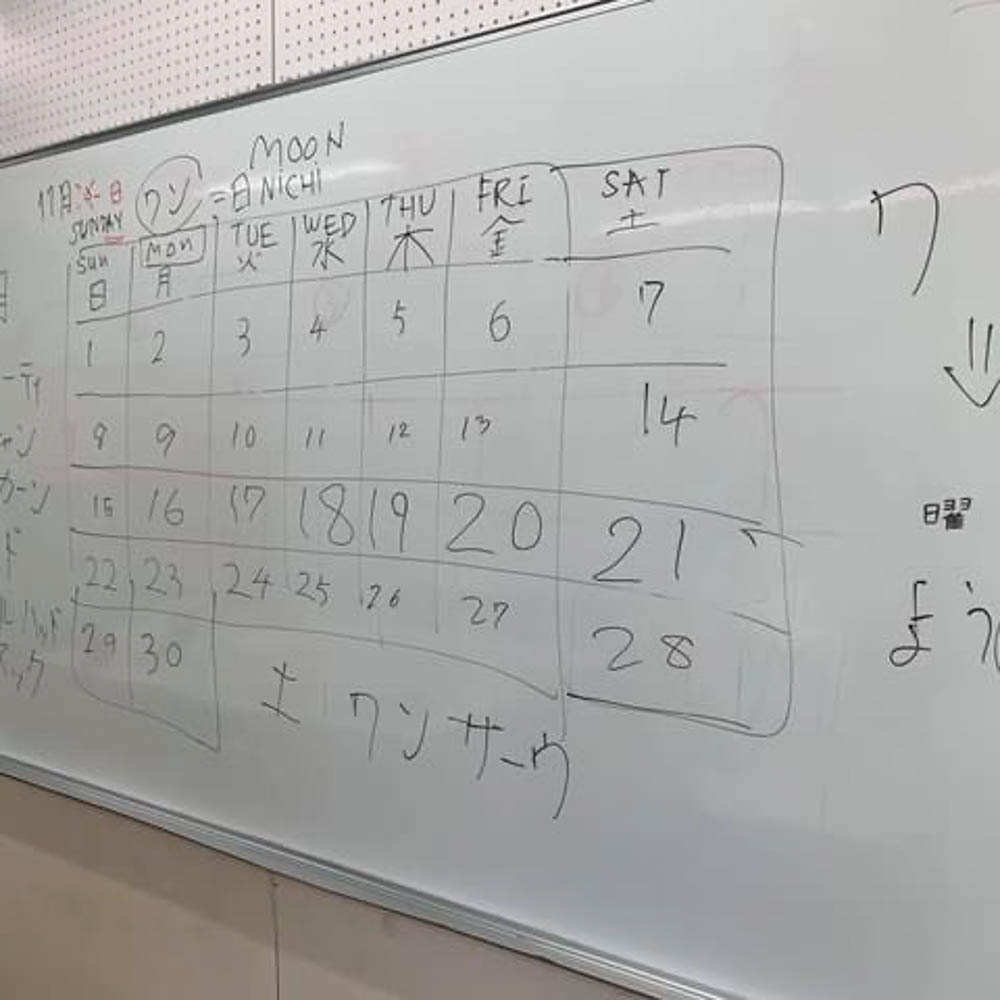 MOON
11月
ワン =日 NICHI
SUNDAY
Sun MON TUE WED THU FRI SAT
日 月 火 水 木 金 土
1 2 3 4 5 6 7
8 9 10 11 12 13 14
15 16 17 18 19 20 21
22 23 24 25 26 27 28
29 30
土 ワンサーウ
ワ
曜
よう
ーティ
カーン